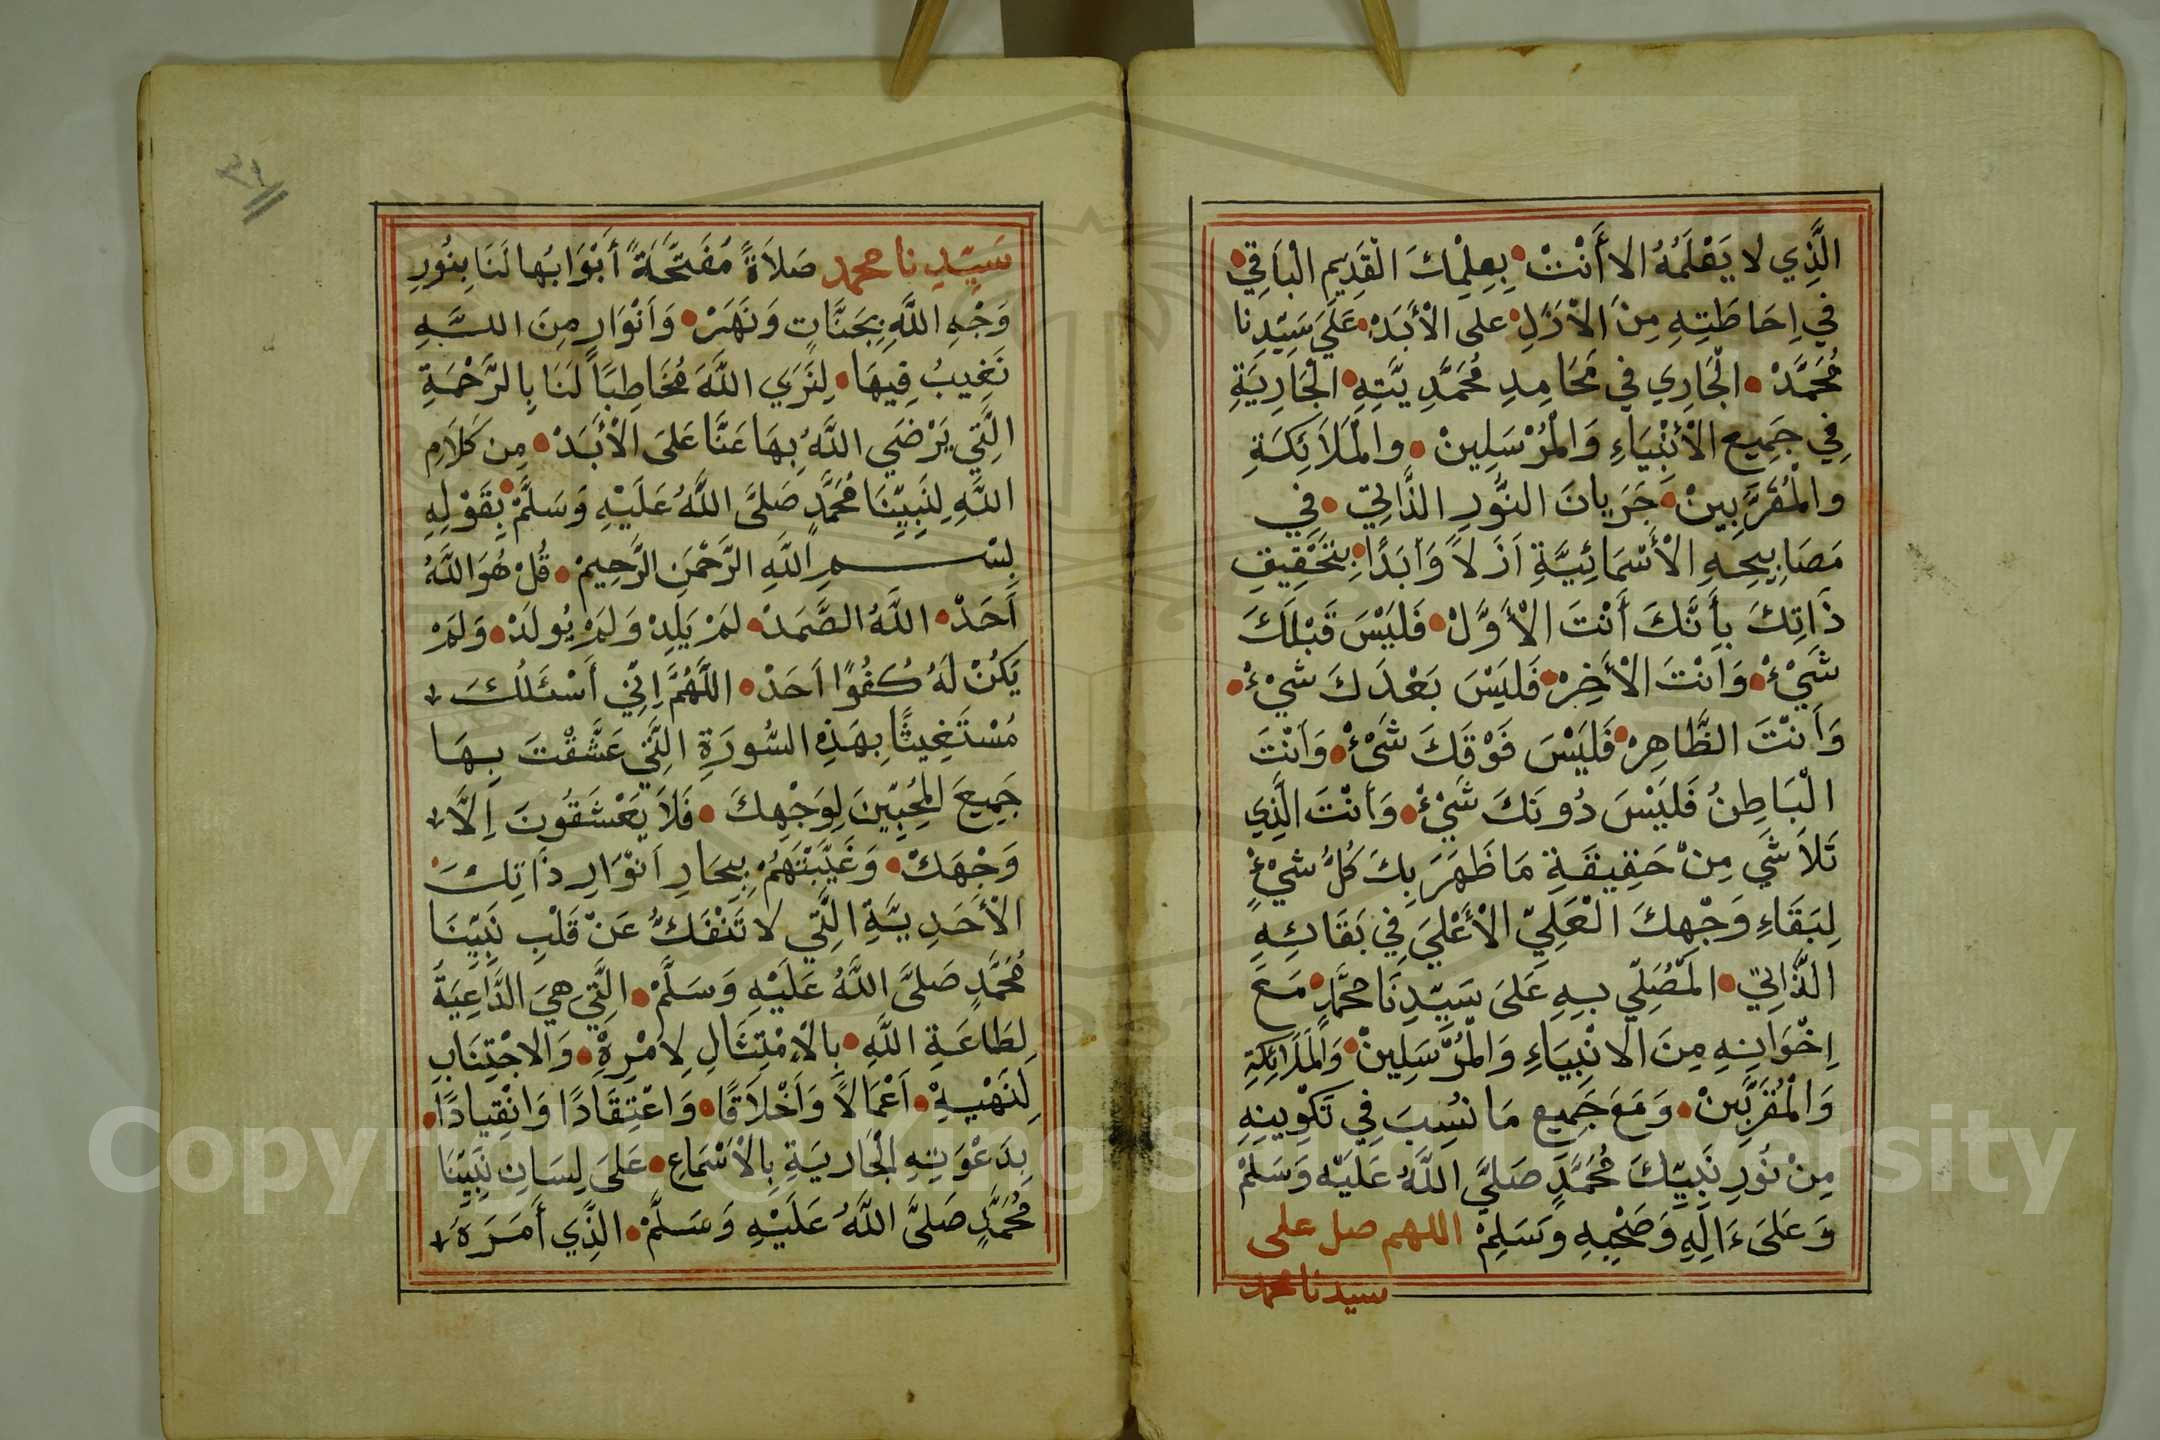 الَّذِي لا يَعْلَمُهُ الا أَنْتْ بِعِلْمِكَ الْقَدِيمِ الْبَاقِي
فِي اِحَاطَتِهِ مِنَ الْأَزَلِ على الْأَبَدْ عَلَىَ سَيِّدِنا
مُحَمَّدْ الْجَارِي فِي مَحَامِدِ مُحَمَّدِيَّتِهِ الْجَارِيَةِ
فِي جَمِيعِ الْأَنْبِيَاءِ وَالْمُرْسَلِينْ والْمَلَائِكَةِ
والْمُقَرَّبِينْ جَرَيانَ النُّورِ الذَّاتِيّ فِي
مَصَابِيحِهِ الْأَسْمَائِيَّةِ اَزَلاً وَاَبَدًا بِتَحْقِيقِ
ذَاتِكَ بِأَنَّكَ أَنْتَ الْأَوَّلْ فَلَيْسَ قَبْلَكَ
شَيْءْ وَاَنْتَ الْأَخِرْ فَلَيْسَ بَعْدَكَ شَيْءْ
وَأَنْتَ الظَّاهِرْ فَلَيْسَ فَوْقَكَ شَيْءْ وَاَنْتَ
الْبَاطِنُ فَلَيْسَ دُونَكَ شَيْءْ وَأَنْتَ الَّذِي
تَلاَشَي مِنْ حَقِيقَةِ مَا ظَهَرَ بِكَ كُلُّ شَيْءٍ
لِبَقَاءِ وَجْهِكَ الْعَلِيّ الْأَعْلَيَ فِي بَقَائِهِ
الذَّاتِيّ الْمُصَلِّي بِهِ عَلَىَ سَيِّدِنَا مُحَمَّدٍ مَعَ
اِخْوَانِهِ مِنَ الْانْبِيَاءِ وَالْمُرْسَلِينْ وَالْمَلَائِكَةِ
وَالْمُقَرَّبِينْ وَمَعَ جَمِيعِ مَا نُسِبَ فِي تَكْوِينِهِ
مِنْ نُورِ نَبِيِّكَ مُحَمَّدٍ صَلَّىَ اللَّهُ عَلَيْهِ وَسَلَّمْ
وَعَلَىَ ءَالِهِ وَصَحْبِهِ وَسَلِّمْ اللهم صل على
سيدنا محمد
٣٤
سَيِّدِنا محمد صَلاَةً مُفَتَّحَةً أَبْوَابُها لَنَا بِنُورِ
وَجْهِ اللَّهِ بِجَنَّاتٍ وَنَهَرْ وَاَنْوَارٍ مِنَ اللَّهِ
نَغِيبُ فِيهَا لِنَرَي اللَّهَ مُخَاطِبًا لَنَا بِالرَّحْمَةِ
الَّتِي يَرْضَي اللَّهُ بِهَا عَنَّا عَلَىَ الْأَبَدْ مِن كَلَامِ
اللَّهِ لِنَبِيِّنَا مُحَمَّدٍ صَلَّىَ اللَّهُ عَلَيْهِ وَسَلَّمْ بِقَوْلِهِ
بِسْمِ اللَّهِ الرَّحْمَنِ الرَّحِيمْ قُلْ هُوَ اللَّهُ
أَحَدْ اللَّهُ الصَّمَدْ لَمْ يَلِدْ وَلَمْ يُولَدْ وَلَمْ
يَكُنْ لَهُ كُفُوًا اَحَدْ اللَّهُمَّ اِنِّي أَسْئَلُكَ
مُسْتَغِيثًا بِهَذِهِ السُّورَةِ الَّتِي عَشَّقْتَ بِهَا
جَمِيعَ الْمُحِبِّينَ لِوَجْهِكَ فَلاَ يَعْشَقُونَ اِلَّا
وَجْهَكْ وَغَيَّبْتَهُمْ بِبِحَارِ اَنْوَارِ ذَاتِكَ
الْأَحَدِيَّةِ الَّتِي لا تَنْفَكُّ عَنْ قَلْبِ نَبِيِّنَا
مُحَمَّدٍ صَلَّىَ اللَّهُ عَلَيْهِ وَسَلَّمْ الَّتِي هِيَ الدَّاعِيَةُ
لِطَاعَةِ اللَّهِ بِالْاِمْتِثَالِ لِامْرِهْ وَالاجْتِنَابِ
لِنَهْيِهْ اَعْمَالاً وَاَخْلاَقًا وَاعْتِقَادًا وَانْقِيادًا
بِدَعْوَتِهِ الْجَارِيَةِ بِالْأَسْمَاعِ عَلَىَ لِسَانِ نَبِيِّنَا
مُحَمَّدٍ صَلَّىَ اللَّهُ عَلَيْهِ وَسَلَّمْ الَّذِي أَمَرَهُ
Copyright © King Saud University